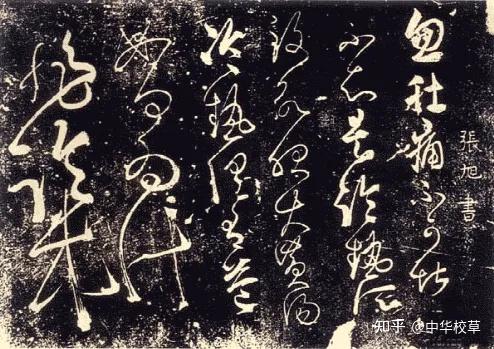 張旭書
忽肚痛不可堪
不知是冷熱所
致欲服大黃湯
冷熱俱有益
如何為計
非臨床
知乎 @中华校草